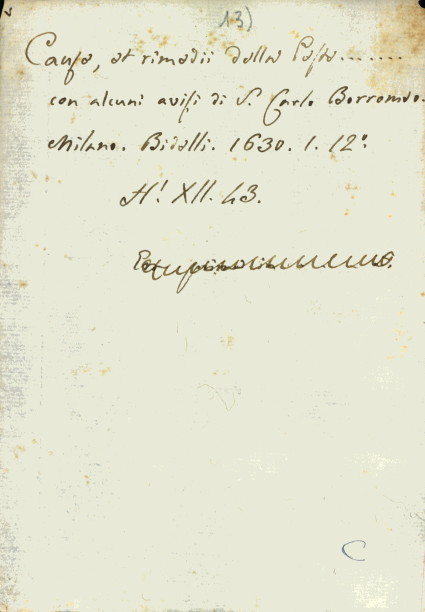 13)
Cause, et rimedii della Peste.......
con alcuni avisi di S. Carlo Borromeo.
Milano. Bidelli. 1630. 1. 12°.
H! XII. 43.
C